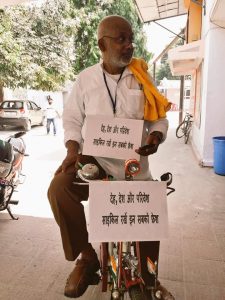 देह, देश और परिवेश
साइकिल रखे इन सबको फ्रेश
देह, देश और परिवेश
साइकिल रखे इन सबको फ्रेश